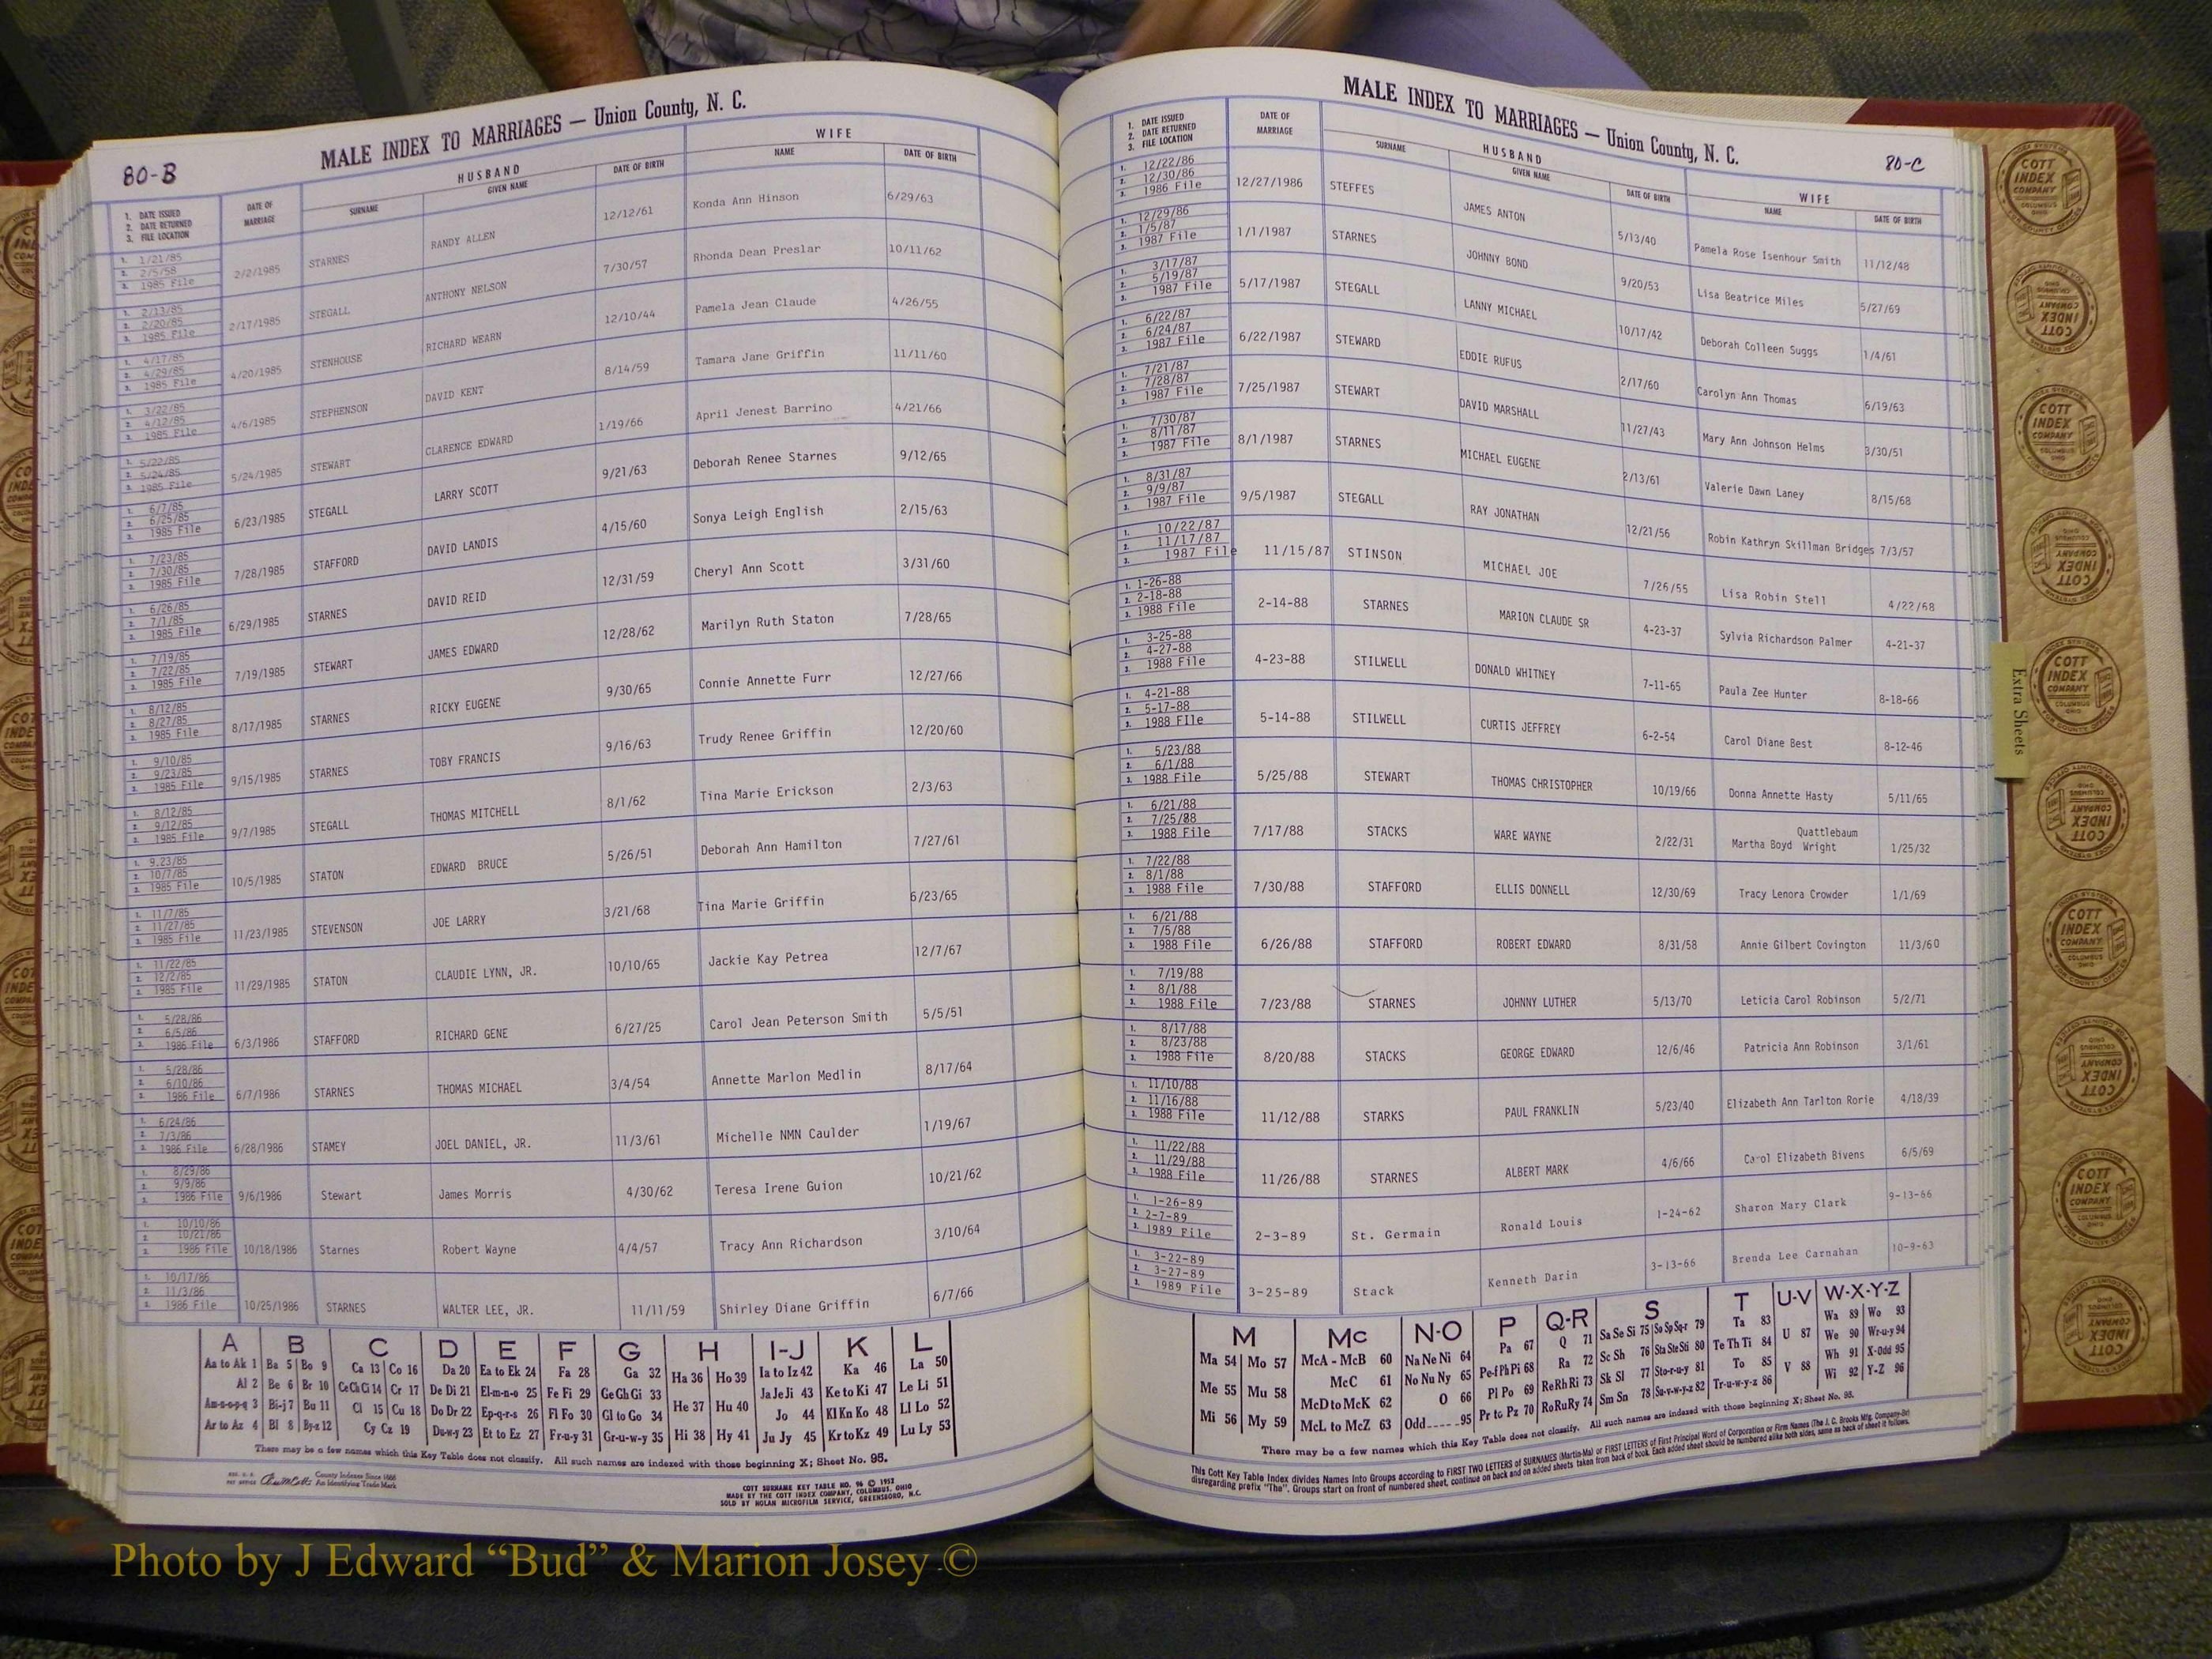 80-B
MALE INDEX TO MARRIAGES — Union County, N. C.
1. DATE ISSUED
2. DATE RETURNED
3. FILE LOCATION
DATE OF MARRIAGE
HUSBAND
SURNAME GIVEN NAME DATE OF BIRTH
WIFE
NAME DATE OF BIRTH
1. 1/21/85
2. 2/5/58
3. 1985 File
2/2/1985 STARNES RANDY ALLEN 12/12/61 Konda Ann Hinson 6/29/63
1. 2/13/85
2. 2/20/85
3. 1985 File
2/17/1985 STEGALL ANTHONY NELSON 7/30/57 Rhonda Dean Preslar 10/11/62
1. 4/17/85
2. 4/29/85
3. 1985 File
4/20/1985 STENHOUSE RICHARD WEARN 12/10/44 Pamela Jean Claude 4/26/55
1. 3/22/85
2. 4/12/85
3. 1985 File
4/6/1985 STEPHENSON DAVID KENT 8/14/59 Tamara Jane Griffin 11/11/60
1. 5/22/85
2. 5/24/85
3. 1985 File
5/24/1985 STEWART CLARENCE EDWARD 1/19/66 April Jenest Barrino 4/21/66
1. 6/7/85
2. 6/25/85
3. 1985 File
6/23/1985 STEGALL LARRY SCOTT 9/21/63 Deborah Renee Starnes 9/12/65
1. 7/23/85
2. 7/30/85
3. 1985 File
7/28/1985 STAFFORD DAVID LANDIS 4/15/60 Sonya Leigh English 2/15/63
1. 6/26/85
2. 7/1/85
3. 1985 File
6/29/1985 STARNES DAVID REID 12/31/59 Cheryl Ann Scott 3/31/60
1. 7/19/85
2. 7/22/85
3. 1985 File
7/19/1985 STEWART JAMES EDWARD 12/28/62 Marilyn Ruth Staton 7/28/65
1. 8/12/85
2. 8/27/85
3. 1985 File
8/17/1985 STARNES RICKY EUGENE 9/30/65 Connie Annette Furr 12/27/66
1. 9/10/85
2. 9/23/85
3. 1985 File
9/15/1985 STARNES TOBY FRANCIS 9/16/63 Trudy Renee Griffin 12/20/60
1. 8/12/85
2. 9/12/85
3. 1985 File
9/7/1985 STEGALL THOMAS MITCHELL 8/1/62 Tina Marie Erickson 2/3/63
1. 9.23/85
2. 10/7/85
3. 1985 File
10/5/1985 STATON EDWARD BRUCE 5/26/51 Deborah Ann Hamilton 7/27/61
1. 11/7/85
2. 11/27/85
3. 1985 File
11/23/1985 STEVENSON JOE LARRY 3/21/68 Tina Marie Griffin 6/23/65
1. 11/22/85
2. 12/2/85
3. 1985 File
11/29/1985 STATON CLAUDIE LYNN, JR. 10/10/65 Jackie Kay Petrea 12/7/67
1. 5/28/86
2. 6/5/86
3. 1986 File
6/3/1986 STAFFORD RICHARD GENE 6/27/25 Carol Jean Peterson Smith 5/5/51
1. 5/28/86
2. 6/10/86
3. 1986 File
6/7/1986 STARNES THOMAS MICHAEL 3/4/54 Annette Marlon Medlin 8/17/64
1. 6/24/86
2. 7/3/86
3. 1986 File
6/28/1986 STAMEY JOEL DANIEL, JR. 11/3/61 Michelle NMN Caulder 1/19/67
1. 8/29/86
2. 9/9/86
3. 1986 File
9/6/1986 Stewart James Morris 4/30/62 Teresa Irene Guion 10/21/62
1. 10/10/86
2. 10/21/86
3. 1986 File
10/18/1986 Starnes Robert Wayne 4/4/57 Tracy Ann Richardson 3/10/64
1. 10/17/86
2. 11/3/86
3. 1986 File
10/25/1986 STARNES WALTER LEE, JR. 11/11/59 Shirley Diane Griffin 6/7/66
A B C D E F G H I-J K L
Aa to Ak 1 Ba 5 Bo 9 Ca 13 Co 16 Da 20 Ea to Ek 24 Fa 28 Ga 32 Ha 36 Ho 39 Ia to Iz 42 Ka 46 La 50
Al 2 Be 6 Br 10 Ce Ch Ci 14 Cr 17 De Di 21 El-m-n-o 25 Fe Fi 29 Ge Gh Gi 33 Ja Je Ji 43 Ke to Ki 47 Le Li 51
Am-n-o-p-q 3 Bi-j 7 Bu 11 Cl 15 Cu 18 Do Dr 22 Ep-q-r-s 26 Fl Fo 30 Gl to Go 34 He 37 Hu 40 Jo 44 Kl Kn Ko 48 Ll Lo 52
Ar to Az 4 Bl 8 By-z 12 Cy Cz 19 Du-w-y 23 Et to Ez 27 Fr-u-y 31 Gr-u-w-y 35 Hi 38 Hy 41 Ju Jy 45 Kr to Kz 49 Lu Ly 53
There may be a few names which this Key Table does not classify. All such names are indexed with those beginning X; Sheet No. 95.
County Indexes Since 1888
An Identifying Trade Mark
COTT SURNAME KEY TABLE NO. 96 © 1952
MADE BY THE COTT INDEX COMPANY, COLUMBUS, OHIO
SOLD BY NOLAN MICROFILM SERVICE, GREENSBORO, N.C.
80-C
MALE INDEX TO MARRIAGES — Union County, N. C.
1. DATE ISSUED
2. DATE RETURNED
3. FILE LOCATION
DATE OF MARRIAGE
HUSBAND
SURNAME GIVEN NAME DATE OF BIRTH
WIFE
NAME DATE OF BIRTH
1. 12/22/86
2. 12/30/86
3. 1986 File
12/27/1986 STEFFES JAMES ANTON 5/13/40 Pamela Rose Isenhour Smith 11/12/48
1. 12/29/86
2. 1/5/87
3. 1987 File
1/1/1987 STARNES JOHNNY BOND 9/20/53 Lisa Beatrice Miles 5/27/69
1. 3/17/87
2. 5/19/87
3. 1987 File
5/17/1987 STEGALL LANNY MICHAEL 10/17/42 Deborah Colleen Suggs 1/4/61
1. 6/22/87
2. 6/24/87
3. 1987 File
6/22/1987 STEWARD EDDIE RUFUS 2/17/60 Carolyn Ann Thomas 6/19/63
1. 7/21/87
2. 7/28/87
3. 1987 File
7/25/1987 STEWART DAVID MARSHALL 11/27/43 Mary Ann Johnson Helms 3/30/51
1. 7/30/87
2. 8/11/87
3. 1987 File
8/1/1987 STARNES MICHAEL EUGENE 2/13/61 Valerie Dawn Laney 8/15/68
1. 8/31/87
2. 9/9/87
3. 1987 File
9/5/1987 STEGALL RAY JONATHAN 12/21/56 Robin Kathryn Skillman Bridges 7/3/57
1. 10/22/87
2. 11/17/87
3. 1987 File
11/15/87 STINSON MICHAEL JOE 7/26/55 Lisa Robin Stell 4/22/68
1. 1-26-88
2. 2-18-88
3. 1988 File
2-14-88 STARNES MARION CLAUDE SR 4-23-37 Sylvia Richardson Palmer 4-21-37
1. 3-25-88
2. 4-27-88
3. 1988 File
4-23-88 STILWELL DONALD WHITNEY 7-11-65 Paula Zee Hunter 8-18-66
1. 4-21-88
2. 5-17-88
3. 1988 FIle
5-14-88 STILWELL CURTIS JEFFREY 6-2-54 Carol Diane Best 8-12-46
1. 5/23/88
2. 6/1/88
3. 1988 File
5/25/88 STEWART THOMAS CHRISTOPHER 10/19/66 Donna Annette Hasty 5/11/65
1. 6/21/88
2. 7/25/88
3. 1988 File
Quattlebaum
7/17/88 STACKS WARE WAYNE 2/22/31 Martha Boyd Wright 1/25/32
1. 7/22/88
2. 8/1/88
3. 1988 File
7/30/88 STAFFORD ELLIS DONNELL 12/30/69 Tracy Lenora Crowder 1/1/69
1. 6/21/88
2. 7/5/88
3. 1988 File
6/26/88 STAFFORD ROBERT EDWARD 8/31/58 Annie Gilbert Covington 11/3/60
1. 7/19/88
2. 8/1/88
3. 1988 File
7/23/88 STARNES JOHNNY LUTHER 5/13/70 Leticia Carol Robinson 5/2/71
1. 8/17/88
2. 8/23/88
3. 1988 File
8/20/88 STACKS GEORGE EDWARD 12/6/46 Patricia Ann Robinson 3/1/61
1. 11/10/88
2. 11/16/88
3. 1988 File
11/12/88 STARKS PAUL FRANKLIN 5/23/40 Elizabeth Ann Tarlton Rorie 4/18/39
1. 11/22/88
2. 11/29/88
3. 1988 File
11/26/88 STARNES ALBERT MARK 4/6/66 Carol Elizabeth Bivens 6/5/69
1. 1-26-89
2. 2-7-89
3. 1989 File
2-3-89 St. Germain Ronald Louis 1-24-62 Sharon Mary Clark 9-13-66
1. 3-22-89
2. 3-27-89
3. 1989 File
3-25-89 Stack Kenneth Darin 3-13-66 Brenda Lee Carnahan 10-9-63
M Mc N-O P Q-R S T U-V W-X-Y-Z
Ma 54 Mo 57 McA - McB 60 Na Ne Ni 64 Pa 67 Q 71 Sa Se Si 75 So Sp Sq-r 79 Ta 83 U 87 Wa 89 Wo 93
McC 61 No Nu Ny 65 Pe-f Ph Pi 68 Ra 72 Sc Sh 76 Sta Ste Sti 80 Te Th Ti 84 We 90 Wr-u-y 94
Me 55 Mu 58 McD to McK 62 O 66 Pl Po 69 Re Rh Ri 73 Sk Sl 77 Sto-r-u-y 81 To 85 V 88 Wh 91 X-Odd 95
Mi 56 My 59 McL to McZ 63 Odd 95 Pr to Pz 70 Ro Ru Ry 74 Sm Sn 78 Su-v-w-y-z 82 Tr-u-w-y-z 86 Wi 92 Y-Z 96
There may be a few names which this Key Table does not classify. All such names are indexed with those beginning X; Sheet No. 95.
This Cott Key Table Index divides Names Into Groups according to FIRST TWO LETTERS of SURNAMES (Martin-Ma) or FIRST LETTERS of First Principal Word of Corporation or Firm Names (The J. C. Brooks Mfg. Company-Br)
disregarding prefix "The". Groups start on front of numbered sheet, continue on back and on added sheets taken from back of book. Each added sheet should be numbered alike both sides, same as back of sheet it follows.
Extra Sheets
COTT INDEX COMPANY COLUMBUS OHIO
Photo by J Edward “Bud” & Marion Josey ©